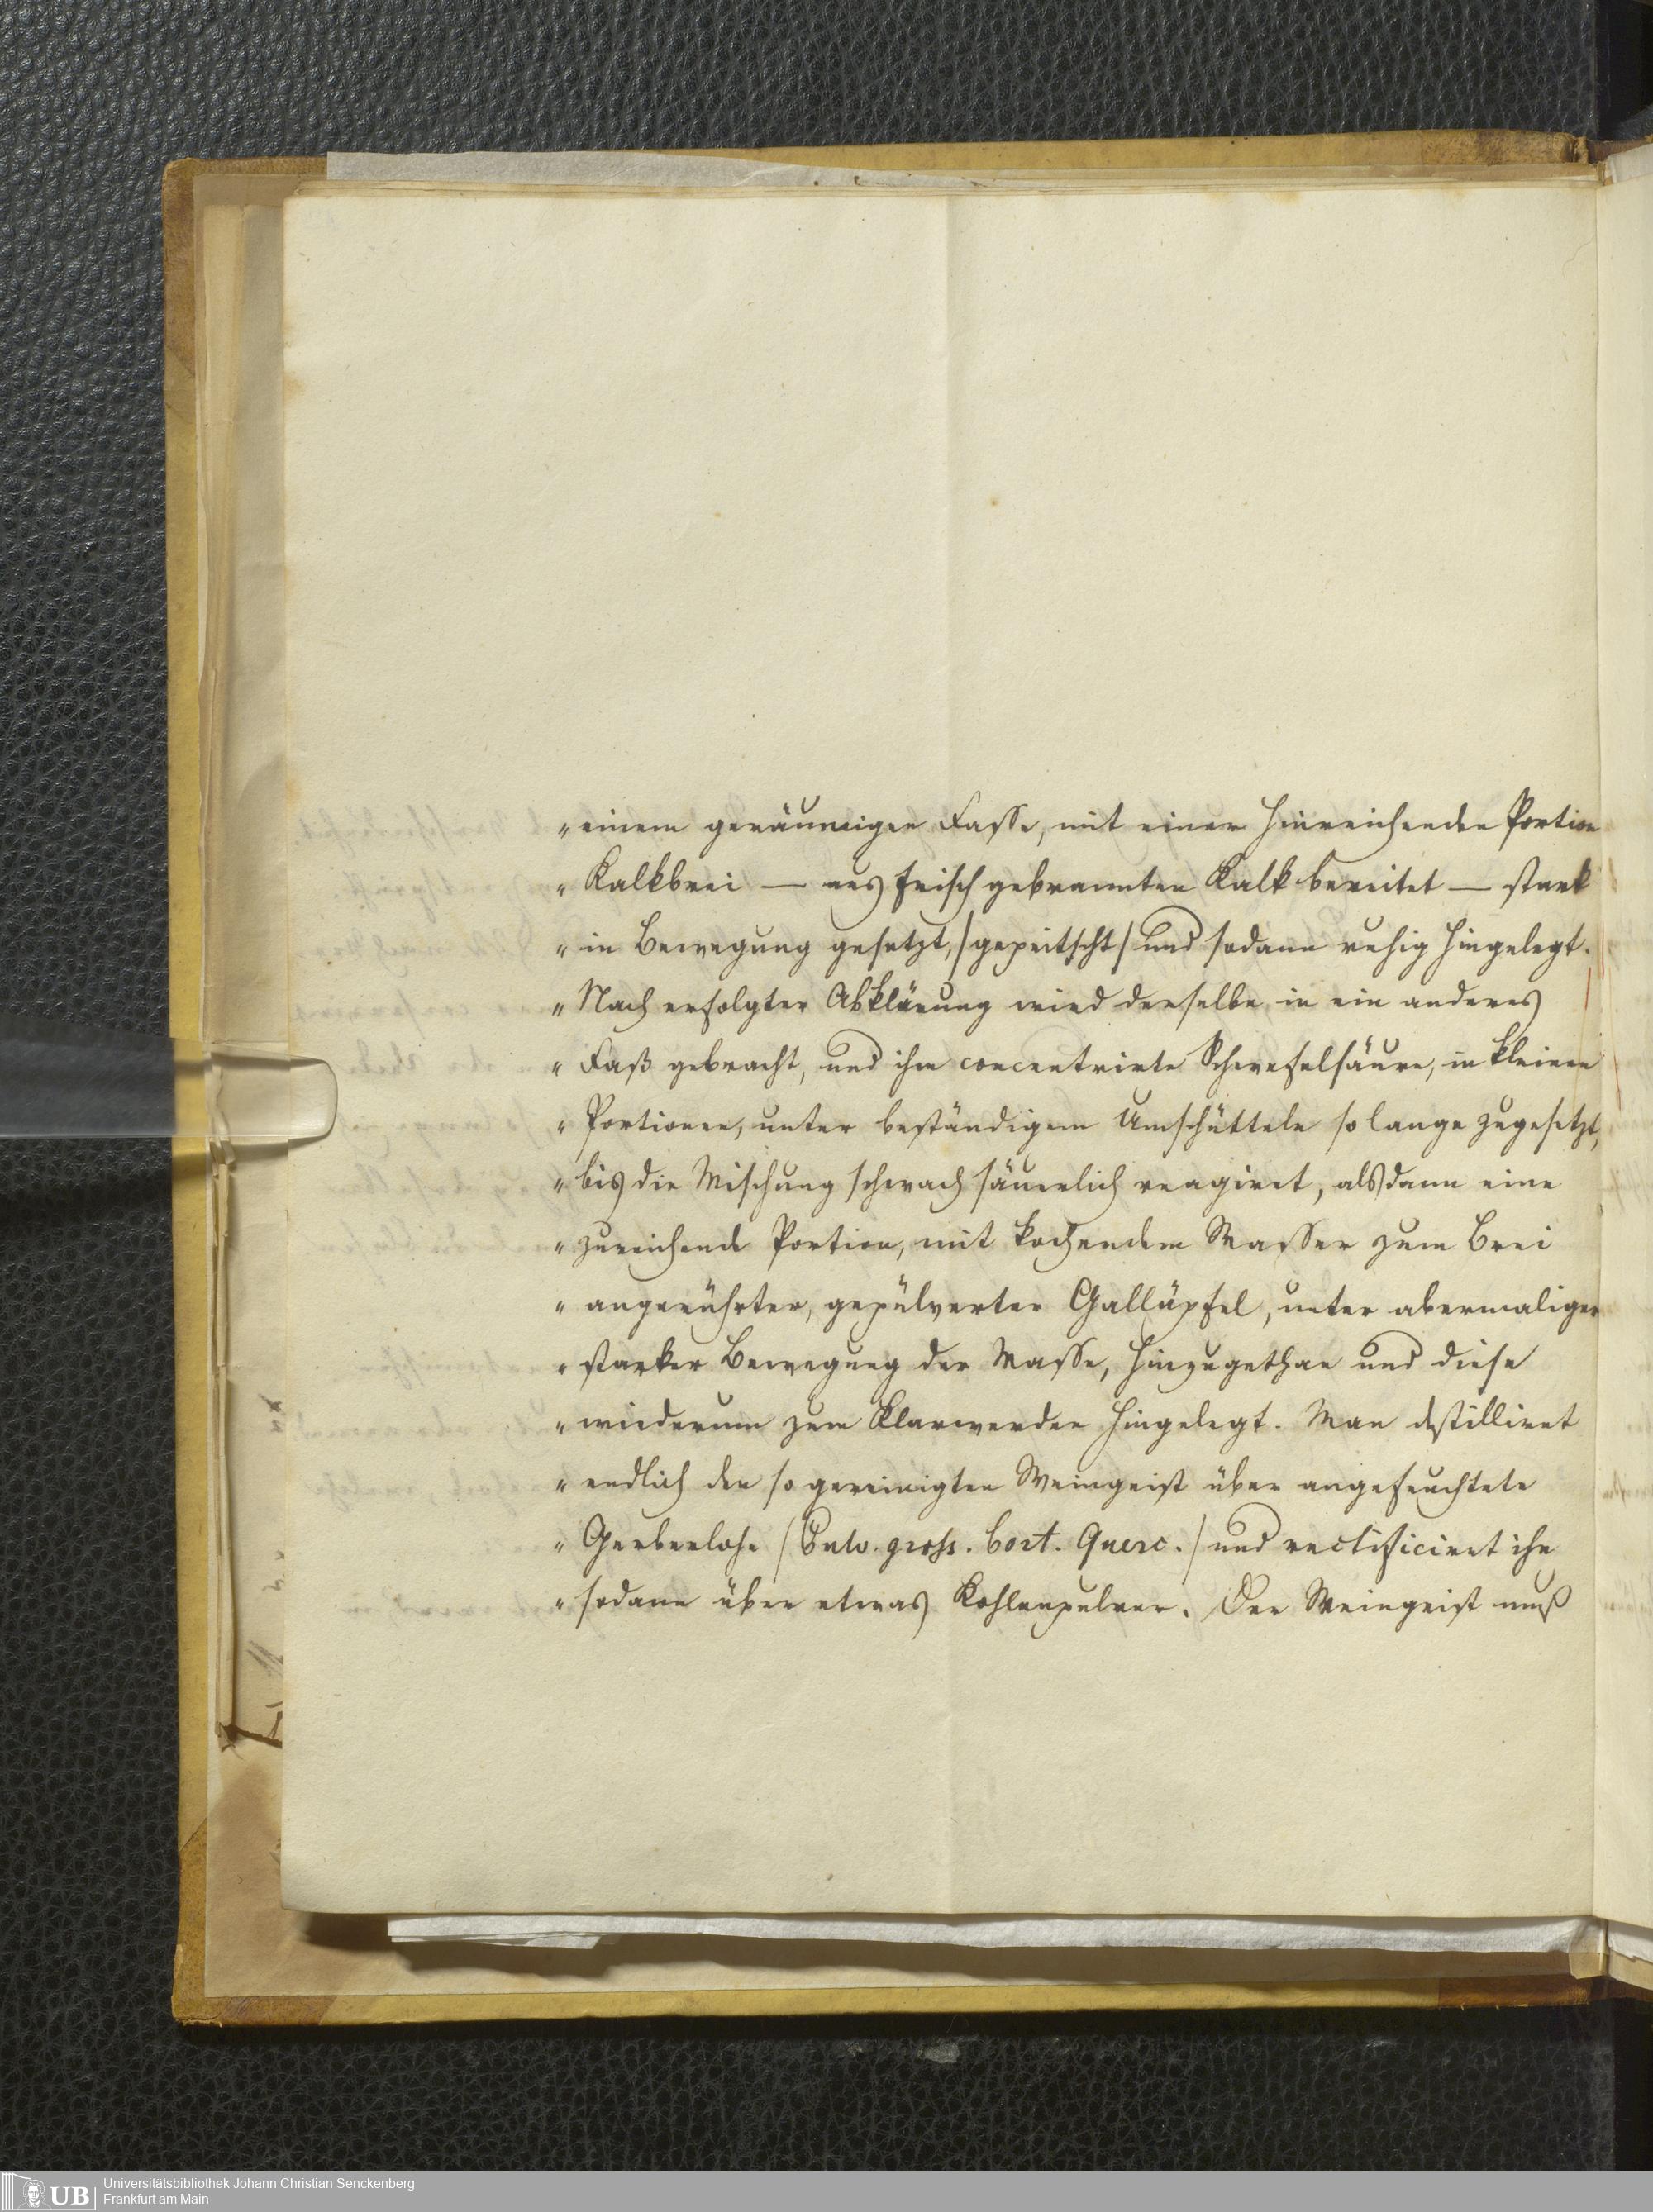 „einem geräumigen Fasse, mit einer hinreichenden Portion
„Kalkbrei — aus frisch gebrannten Kalk bereitet — stark
„in Bewegung gesetzt, /gepeitscht/ und sodann ruhig hingelegt.
„Nach erfolgter Abklärung wird derselbe in ein anderes
„Faß gebracht, und ihm concentrirte Schwefelsäure, in kleinen
„Portionen, unter beständigem Umschütteln so lange zugesetzt,
„bis die Mischung schwach säuerlich reagiret, alsdann eine
„zureichende Portion, mit kochendem Wasser zum Brei
„angerührter, gepülverter Galläpfel, unter abermaliger
„starker Bewegung der Masse, hinzugethan und diese
„wiederum zum Klarwerden hingelegt. Man destilliret
„endlich den so gereinigten Weingeist über angefeuchtete
„Gerberlohe /Pulv. gross. Cort. Querc./ und rectificiret ihn
„sodann über etwas Kohlenpulver. Der Weingeist muß
UB
Universitätsbibliothek Johann Christian Senckenberg
Frankfurt am Main